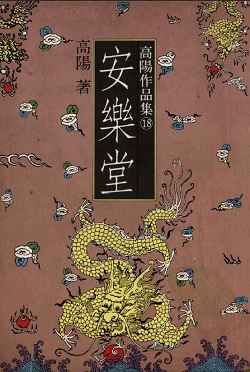 高陽作品集⑱
安樂堂
高陽 著